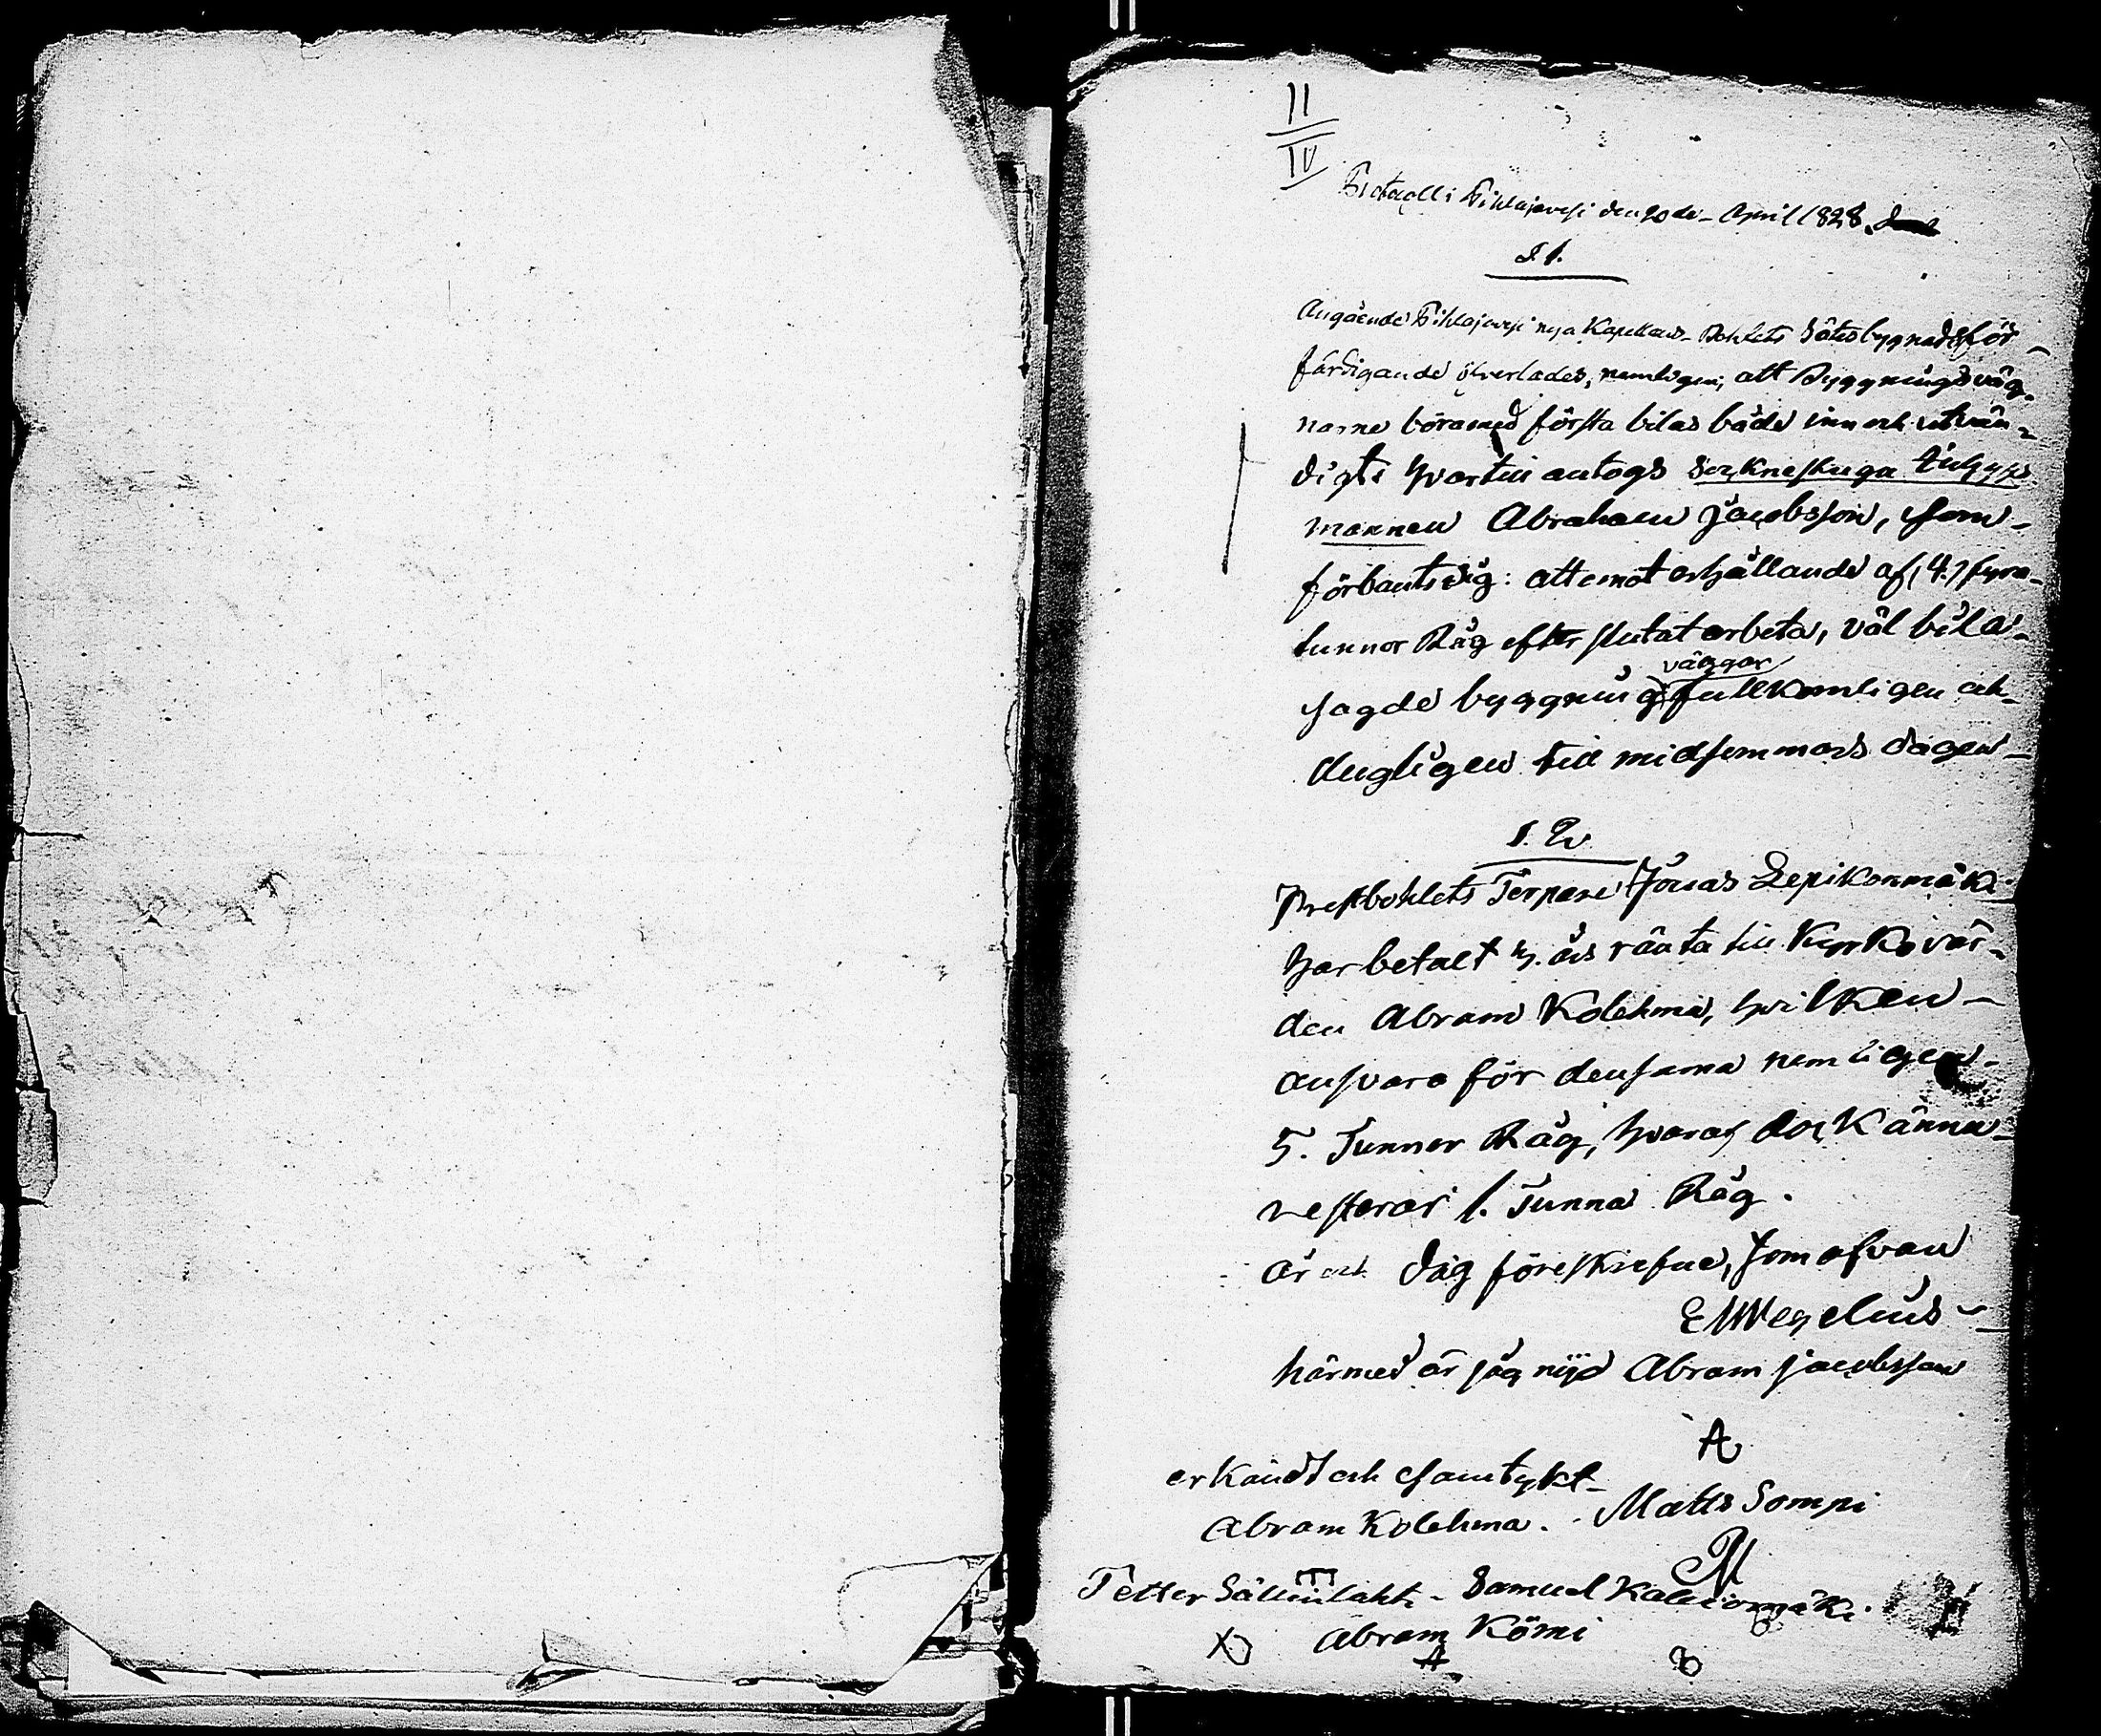 II
IV
Protocoll i Pihlajavesi den 20de April 1828.
§. 1.
Angående Pihlajavesi nya Kapellans-Bohlets Sätesbygnads för-
färdigande öfverlades, nemligen, att Byggningsväg-
narne böra med första bilas både inn och utvän-
digt: hvartill antogs
mannen Abraham Jacobsson, som
förbant sig: att emot erhållande af (4.) fyra
tunnor Råg efter slutat arbeta, väl bila
väggar
sagde byggnings fullkomligen och
dugligen till midsommars dagen
§. 2
Prestbohlets Torpare Jonas Lepikonmäki
har betalt h. års ränta till Kyrkovär-
den Abram Kolehma, hvilken
ansvara för densama nemligen
5. Tunnor Råg, hvaraf dock ännu
resterar 1. Tunna Råg.
år och dag föreskrefne, som ofvan
EMWegelius
härmed är jag nöjd Abram Jacobsson
A
erkändt och samtykt
Abram Kolehma. Matts Sompi
M
Petter Sällinlahti - Samuel Kaleiomäki.
Abram Kömi
A